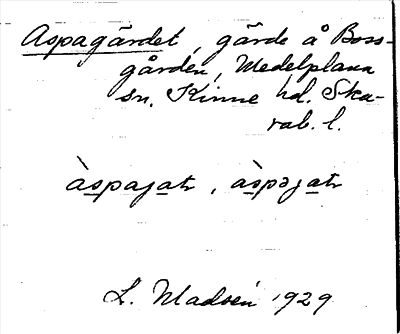 Aspagärdet, gärde å Boss-
gården, Medelplana
sn. Kinne hd. Ska-
rab. l.
àspaʝat, àspəʝat
L. Madsén 1929